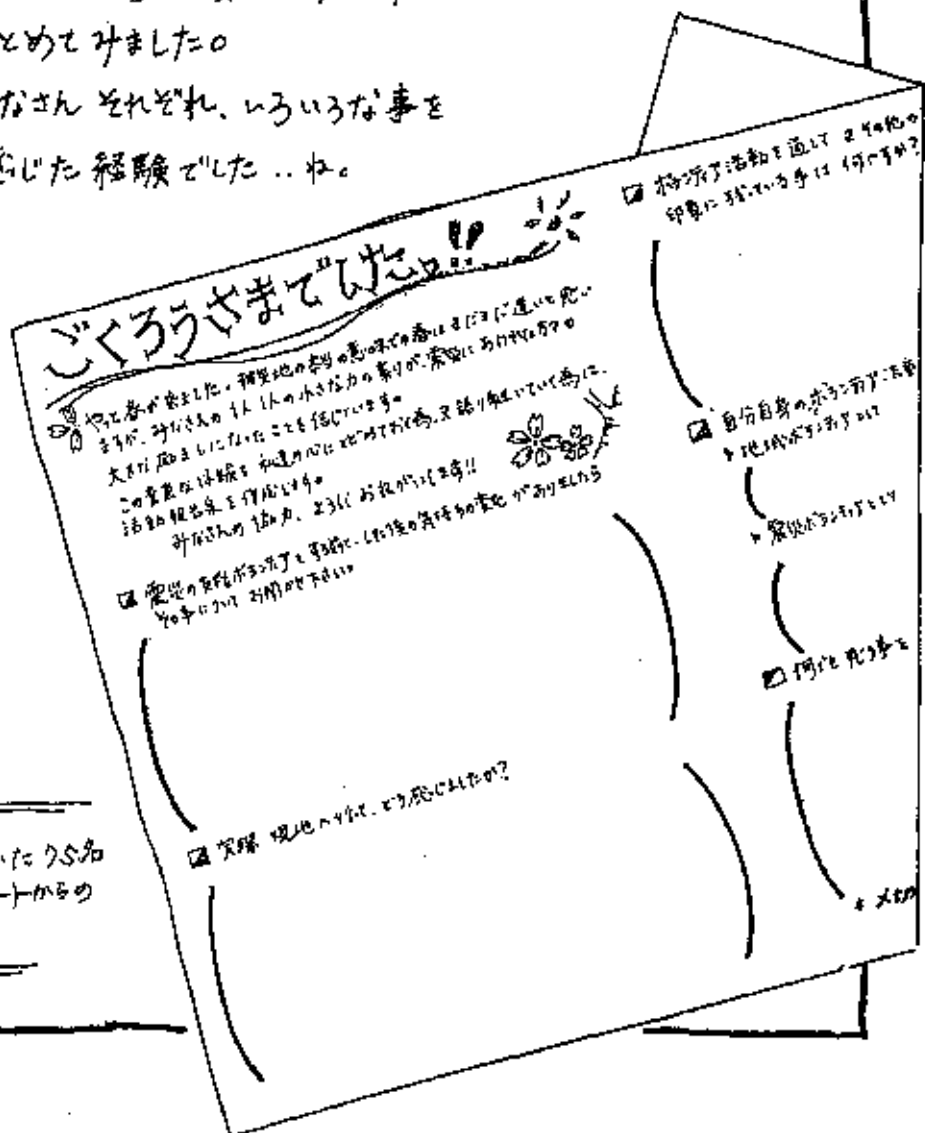 とめてみました。
なさん それぞれ、いろいろな事を
感じた 経験でした‥ね。
ごくろうさまでした。!!
やっと春が来ました。被災地の本当の意味での春はまだまだ遠いと思い
ますが、みなさんの1人1人の小さな力の集りが、
大きな励ましになったことを信じています。
この貴重な体験を私達の心にとどめておく為、又語り継いでいく為に、
活動報告集を作成します。
みなさんの協力、よろしくお願いいたします!!
震災の支援ボランティアをする前と、した後の気持ちの変化がありましたら
その事について お聞かせ下さい。
実際 現地へ行って、どう感じましたか?
ボランティア活動を通して
印象に残っている事は 何ですか?
自分自身のボランティア活動
地域ボランティアとして
震災ボランティアとして
何でも 思う事を
*〆切
た75名
ートからの